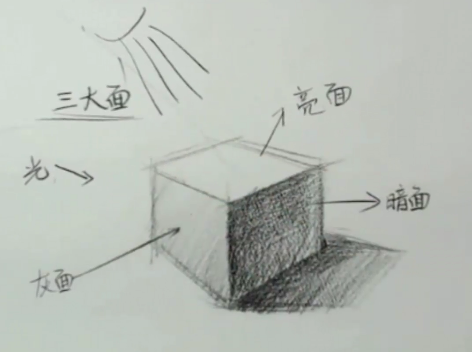 三大面
亮面
光
暗面
灰面